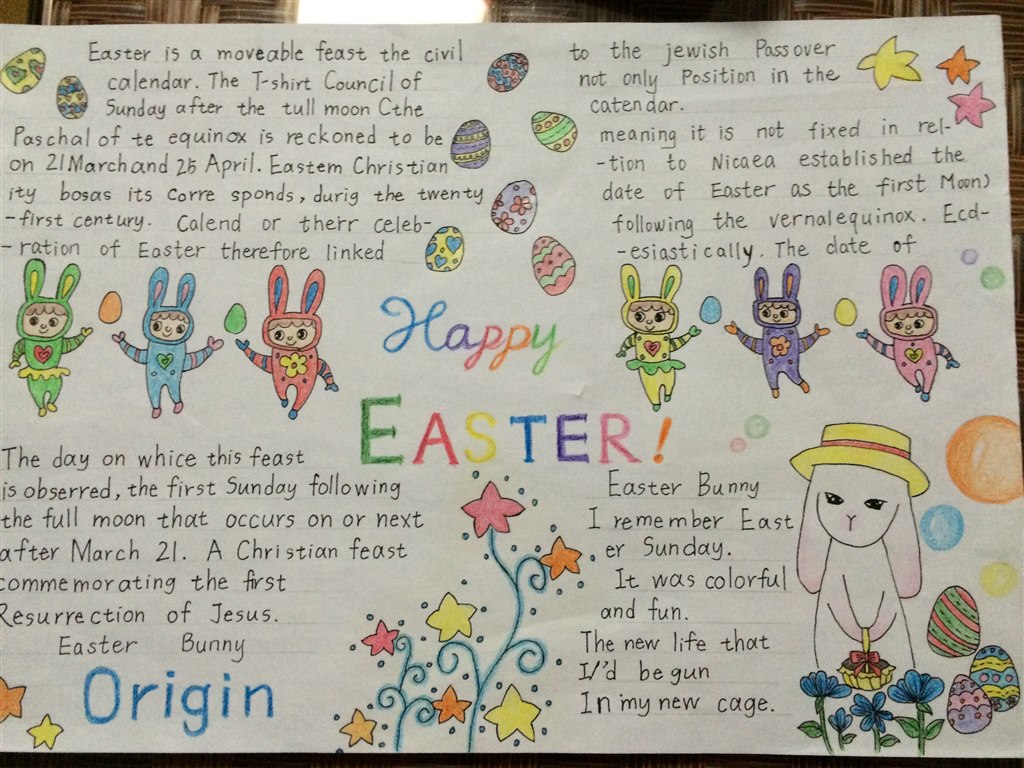 Easter is a moveable feast the civil
calendar. The T-shirt Council of
Sunday after the tull moon Cthe
Paschal of te equinox is reckoned to be
on 21 March and 25 April. Eastem Christian
ity bosas its Corre sponds, durig the twenty
-first century. Calend or therr celeb-
-ration of Easter therefore linked
to the jewish Passover
not only Position in the
catendar.
meaning it is not fixed in rel-
-tion to Nicaea established the
date of Easter as the first Moon)
following the vernalequinox. Ecd-
-esiastically. The date of
Happy
EASTER!
The day on whice this feast
is obserred, the first Sunday following
the full moon that occurs on or next
after March 21. A Christian feast
commemorating the first
Resurrection of Jesus.
Easter Bunny
Origin
Easter Bunny
I remember East
er Sunday.
It was colorful
and fun.
The new life that
I/'d be gun
In my new cage.